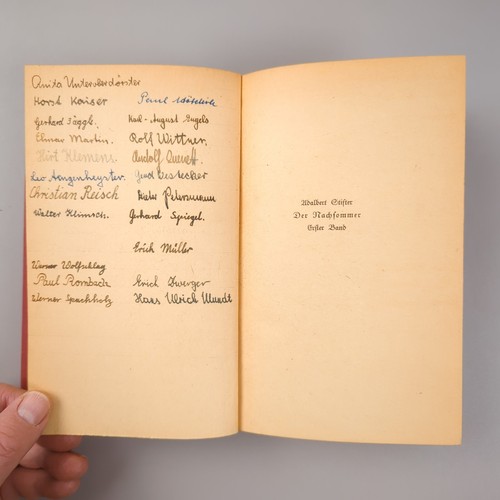 Anita Unterberdörster
Horst Kaiser
Gerhard
Elmar Martin.
Kirt Klemens
Leo
Christian Reisch
Walter Klimsch.
Werner Wolfschlag
Paul Rombach
Werner Spachholz
Paul
Karl-August Engels
Rolf Wittner.
Rudolf
Gerd
Petersmann
Gerhard Spiegel.
Erich Müller
Erich Zwerger
Hans Ulrich Wundt
Adalbert Stifter
Der Nachsommer
Erster Band